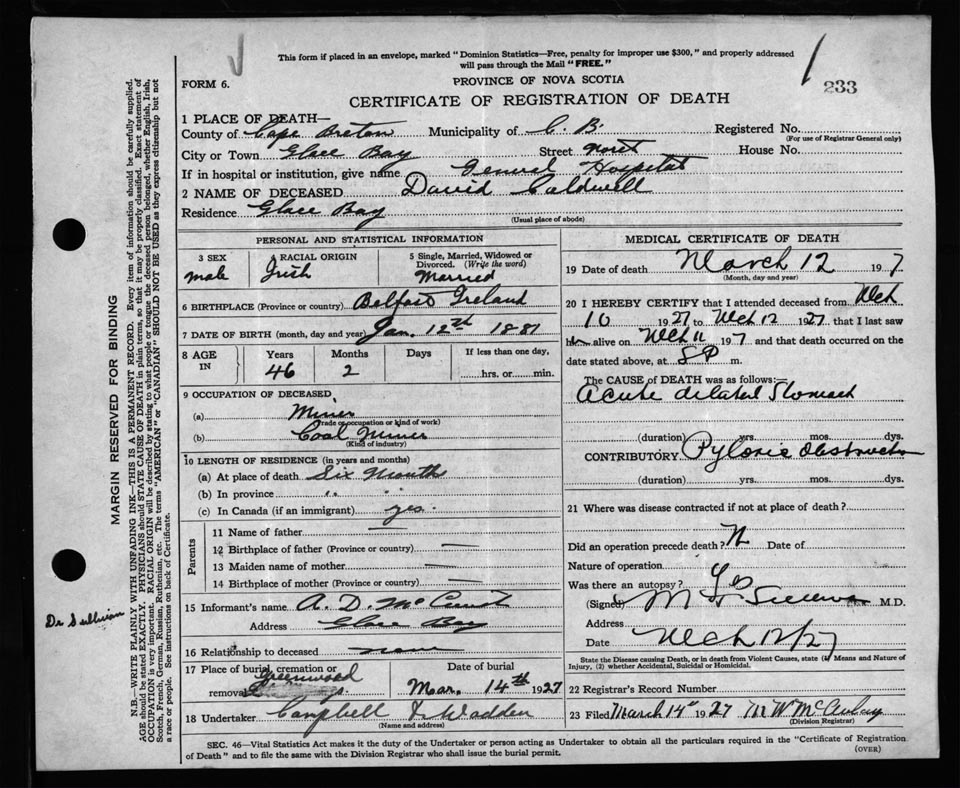 This form if placed in an envelope, marked "Dominion Statistics—Free, penalty for improper use $300," and properly addressed
will pass through the Mail "FREE."
233
FORM 6.
PROVINCE OF NOVA SCOTIA
CERTIFICATE OF REGISTRATION OF DEATH
1 PLACE OF DEATH—
County of Cape Breton Municipality of C. B. Registered No.
(For use of Registrar General only)
City or Town Glace Bay Street House No.
If in hospital or institution, give name General Hospital
2 NAME OF DECEASED David Caldwell
Residence Glace Bay
(Usual place of abode)
PERSONAL AND STATISTICAL INFORMATION
3 SEX 4 RACIAL ORIGIN 5 Single, Married, Widowed or
Divorced. (Write the word)
male Irish Married
6 BIRTHPLACE (Province or country) Belfast Ireland
7 DATE OF BIRTH (month, day and year) Jan. 12th 1881
8 AGE IN Years Months Days If less than one day,
46 2 hrs. or min.
9 OCCUPATION OF DECEASED
(a) Miner
(Trade or occupation or kind of work)
(b) Coal Miner
(Kind of industry)
10 LENGTH OF RESIDENCE (in years and months)
(a) At place of death Six Months
(b) In province " "
(c) In Canada (if an immigrant) yes.
Parents
11 Name of father —
12 Birthplace of father (Province or country) —
13 Maiden name of mother —
14 Birthplace of mother (Province or country) —
15 Informant's name A. D.
Address Glace Bay
16 Relationship to deceased none
17 Place of burial, cremation or Date of burial
Greenwood
removal Mar. 14th 1927
18 Undertaker Campbell & Wadden
(Name and address)
MEDICAL CERTIFICATE OF DEATH
19 Date of death March 12 1927
(Month, day and year)
20 I HEREBY CERTIFY that I attended deceased from Mch
10 1927 to Mch 12 1927 that I last saw
him alive on Mch 11 1927 and that death occurred on the
date stated above, at 8 P m.
The CAUSE OF DEATH was as follows:—
Acute dilated Stomach
(duration) yrs. mos. dys.
CONTRIBUTORY Pyloric Obstruction
(duration) yrs. mos. dys.
21 Where was disease contracted if not at place of death?
Did an operation precede death? N Date of
Nature of operation
Was there an autopsy? Yes
(Signed) M. D.
Address
Date Mch 12/27
State the Disease causing Death, or in death from Violent Causes, state (1) Means and Nature of
Injury, (2) whether Accidental, Suicidal or Homicidal.
22 Registrar's Record Number
23 Filed March 14 1927
(Division Registrar)
SEC. 46—Vital Statistics Act makes it the duty of the Undertaker or person acting as Undertaker to obtain all the particulars required in the "Certificate of Registration
of Death" and to file the same with the Division Registrar who shall issue the burial permit.
(OVER)
MARGIN RESERVED FOR BINDING
N.B.—WRITE PLAINLY WITH UNFADING INK—THIS IS A PERMANENT RECORD. Every item of information should be carefully supplied.
AGE should be stated EXACTLY. PHYSICIANS should STATE CAUSE OF DEATH in plain terms, so that it may be properly classified. Exact statement of
OCCUPATION is very important. RACIAL ORIGIN will be described by stating to what people or tongue the deceased person belonged, whether English, Irish,
Scotch, French, German, Russian, Ruthenian, etc. The terms "AMERICAN" or "CANADIAN" SHOULD NOT BE USED as they express citizenship but not
a race or people. See instructions on back of Certificate.
Dr Sullivan